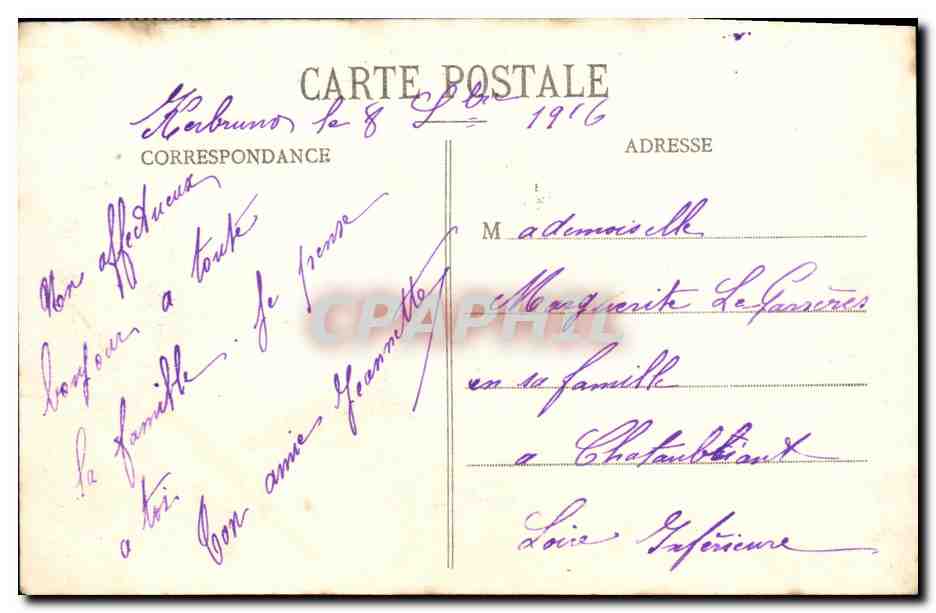 CARTE POSTALE
Kerbruno le 8 1916
CORRESPONDANCE
ADRESSE
Mon affectueux
bonjour a toute
la famille. Je pense
a toi.
Ton amie Jeannette
Mademoiselle
Marguerite Le
en sa famille
a Chataubriant
Loire Inférieure
CPAPHIL